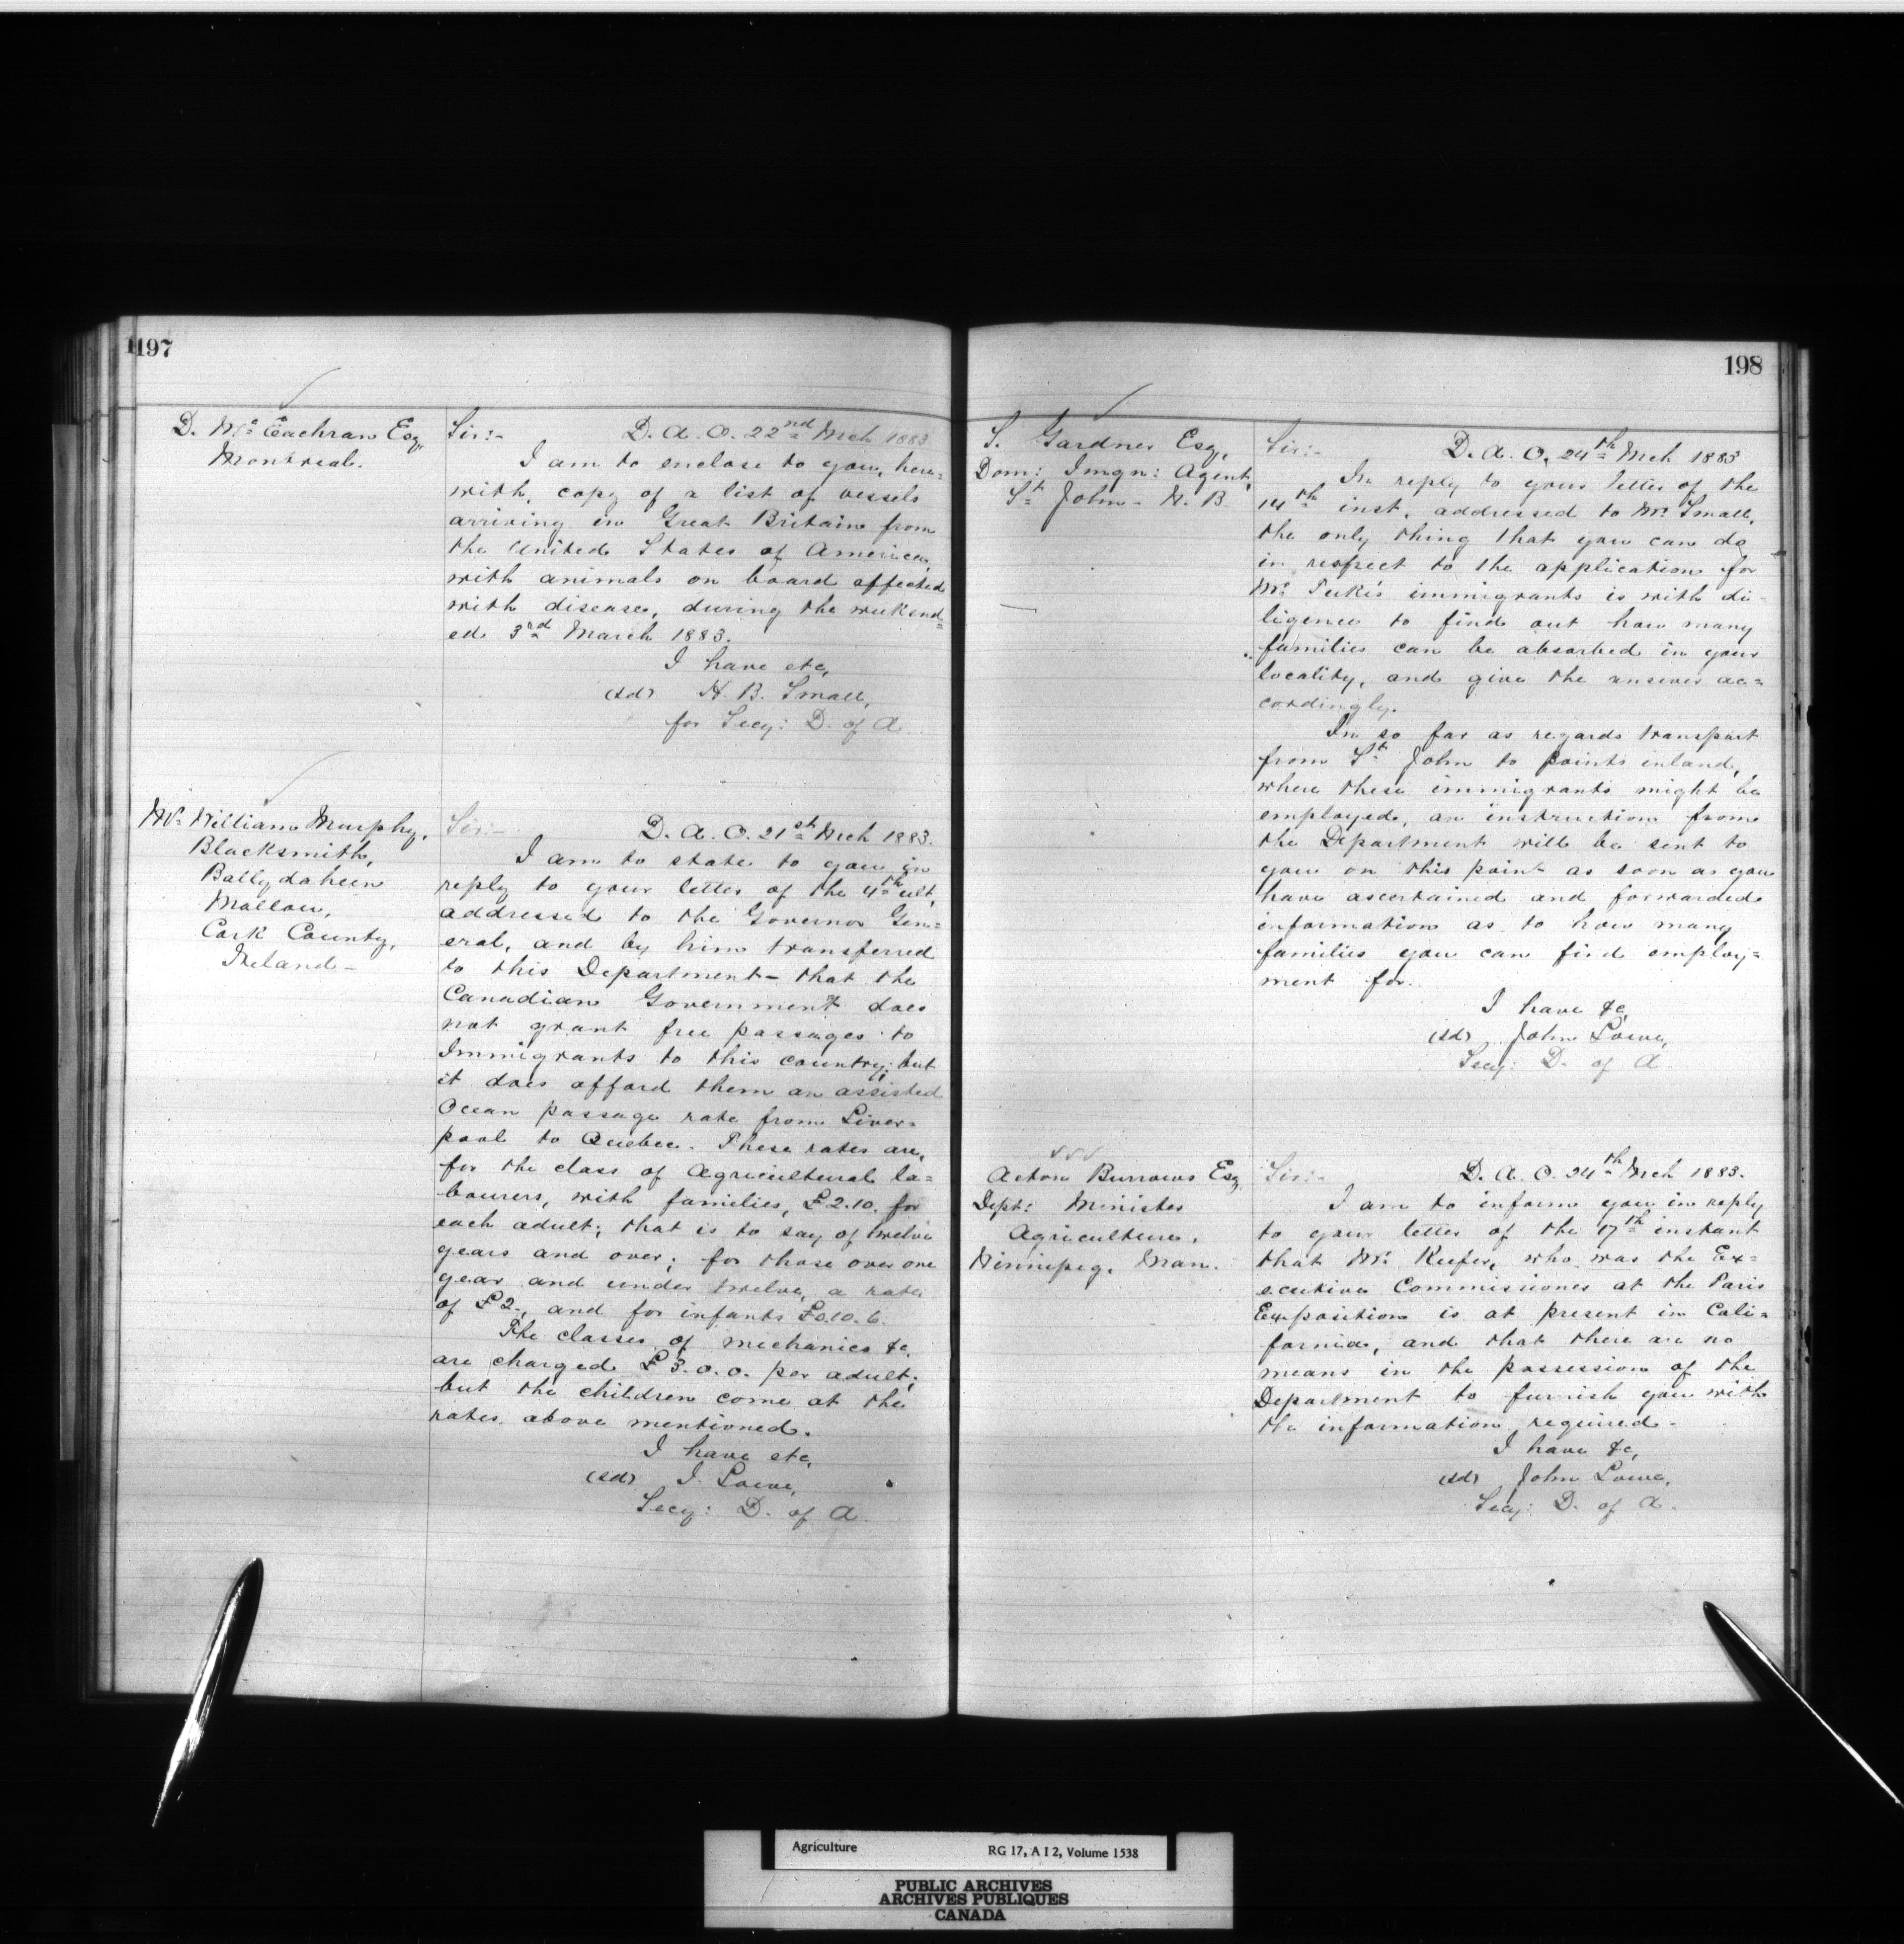 197
D. McEachran Esq,
Montreal.
Sir:- D. A. O. 22nd Mch 1883
I am to enclose to you, here=
with, copy of a list of vessels
arriving in Great Britain from
the United States of America,
with animals on board affected
with disease, during the week end=
ed 3rd March 1883.
I have etc,
(sd) H. B. Small,
for Secy: D. of A.
Mr William Murphy,
Blacksmith,
Ballydaheen
Mallow,
Cork County,
Ireland -
Sir:- D. A. O. 21st Mch 1883.
I am to state to you in
reply to your letter of the 4th ult,
addressed to the Governor Gen=
eral, and by him transferred
to this Department - that the
Canadian Government does
not grant free passages to
Immigrants to this country; but
it does afford them an assisted
Ocean passage rate from Liver=
pool to Quebec. These rates are,
for the class of Agricultural la=
bourers, with families, £2.10. for
each adult; that is to say of twelve
years and over; for those over one
year and under twelve, a rate
of £2., and for infants £0.10.6.
The classes of mechanics &c,
are charged £3.0.0. per adult;
but the children come at the
rates above mentioned.
I have etc,
(sd) J. Lowe,
Secy: D. of A.
198
S. Gardner Esq,
Dom: Imgn: Agent,
St John - N. B.
Sir:- D. A. O. 24th Mch 1883
In reply to your letter of the
14th inst, addressed to Mr Small,
the only thing that you can do
in respect to the application for
Mr Tuke's immigrants is with di-
ligence to find out how many
families can be absorbed in your
locality, and give the answer ac=
cordingly.
In so far as regards transport
from St John to points inland,
where these immigrants might be
employed, an instruction from
the Department will be sent to
you on this point as soon as you
have ascertained and forwarded
information as to how many
families you can find employ=
ment for.
I have &c,
(sd) John Lowe,
Secy: D. of A.
Acton Burrows Esq,
Dept: Minister
Agriculture,
Winnipeg, Man.
Sir:- D. A. O. 24th Mch 1883.
I am to inform you in reply
to your letter of the 17th instant
that Mr Keefer, who was the Ex=
ecutive Commissioner at the Paris
Exposition is at present in Cali=
fornia, and that there are no
means in the possession of the
Department to furnish you with
the information required -
I have &c,
(sd) John Lowe,
Secy: D. of A.
Agriculture RG 17, A I 2, Volume 1538
PUBLIC ARCHIVES
ARCHIVES PUBLIQUES
CANADA